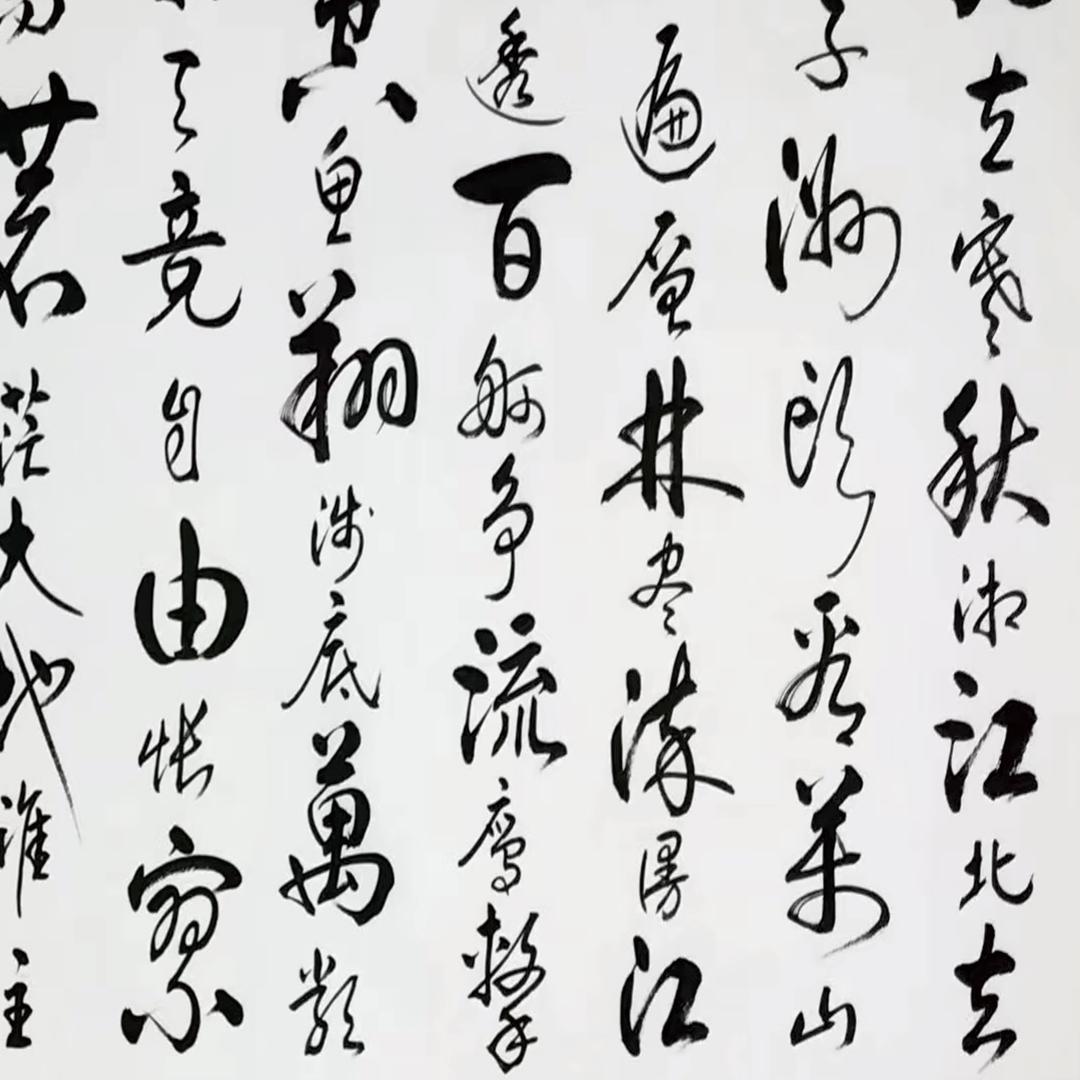 立寒秋湘江北去
子洲頭看萬山
遍层林尽染漫江
透百舸争流鹰擊
鱼翔浅底萬類
天竞自由怅寥
苍茫大地谁主